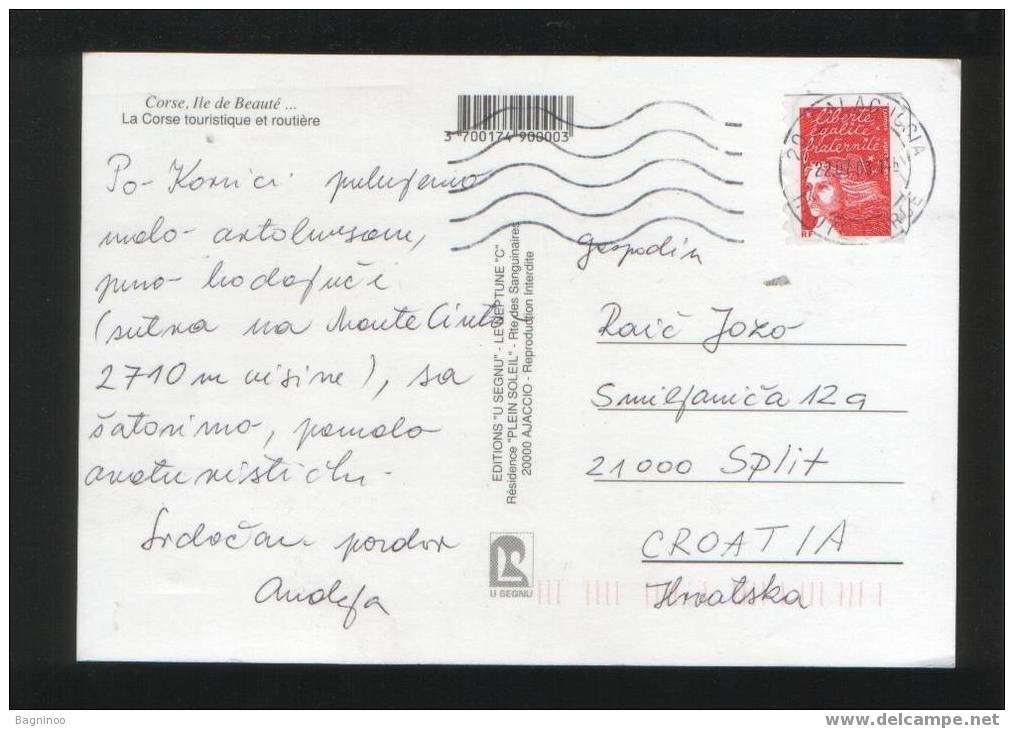 Corse, Ile de Beauté ...
La Corse touristique et routière
3 700174 900003
Po-Korzici putujemo
malo-autobusom,
puno-hodajući
(sutra na Monte Cinto
2710 m visine), sa
šatorimo, pomalo
avoturistički-
Srdačan-pozdrav
Anđeja
EDITIONS "U SEGNU" - LE NEPTUNE "C"
Résidence "PLEIN SOLEIL" - Rte des Sanguinaires
20000 AJACCIO - Reproduction Interdite
U SEGNU
liberté
égalité
fraternité
RF
Gospodin
Raić Jozo
Smiljanića 12a
21000 Split
CROATIA
Hrvatska
Bagninoo
www.delcampe.net